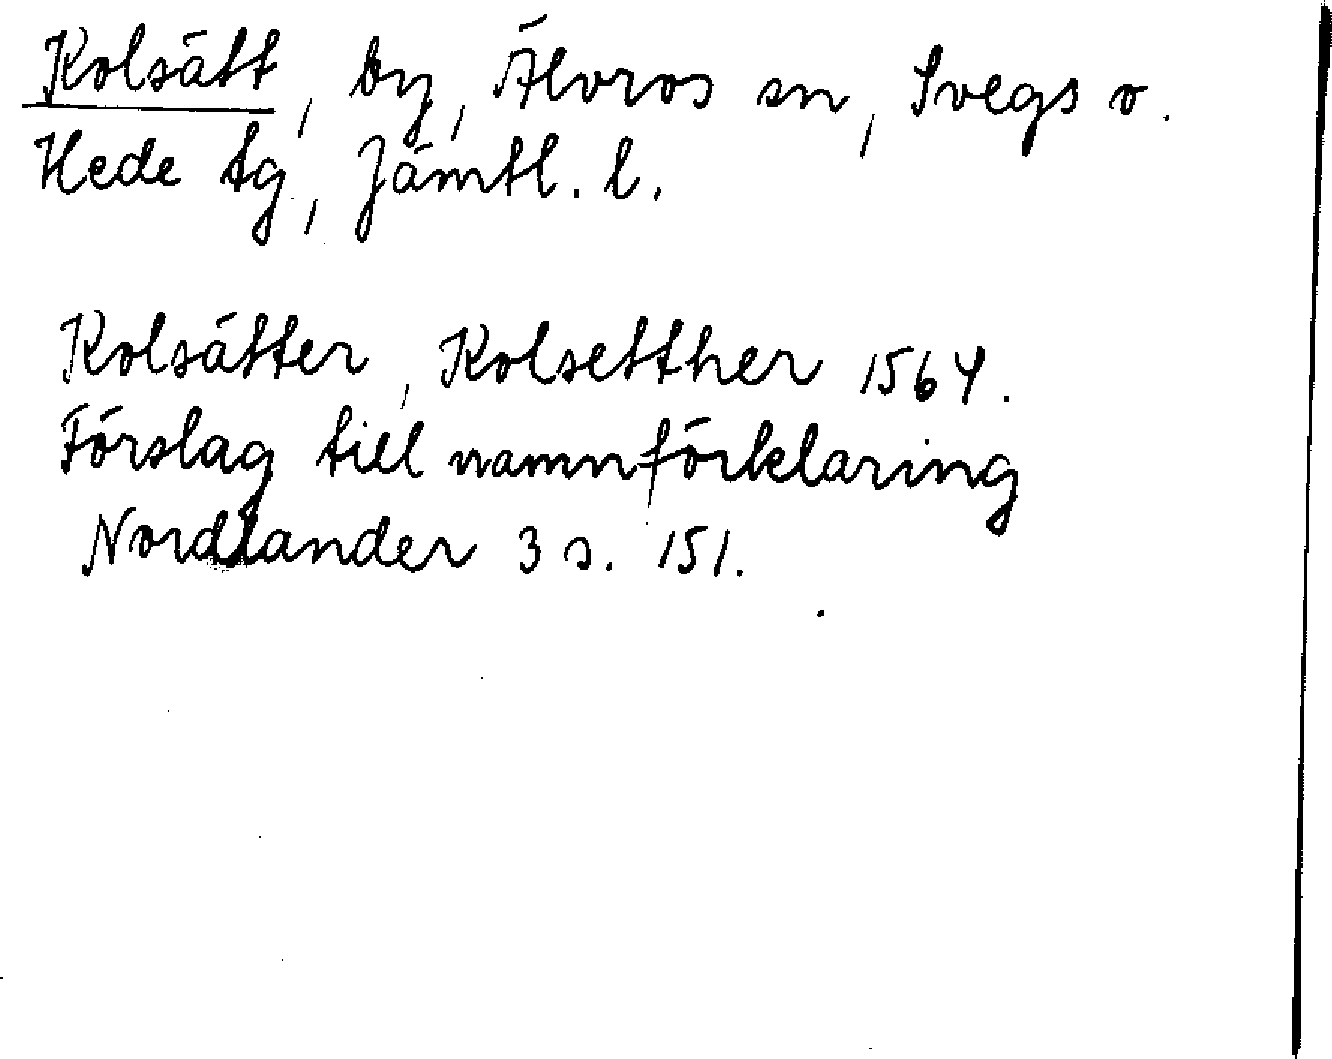 Kolsätt, by, Älvros sn, Svegs o.
Hede tg, Jämtl. l.
Kolsätter, Kolsetther 1564.
Förslag till namnförklaring
Nordlander 3 s. 151.